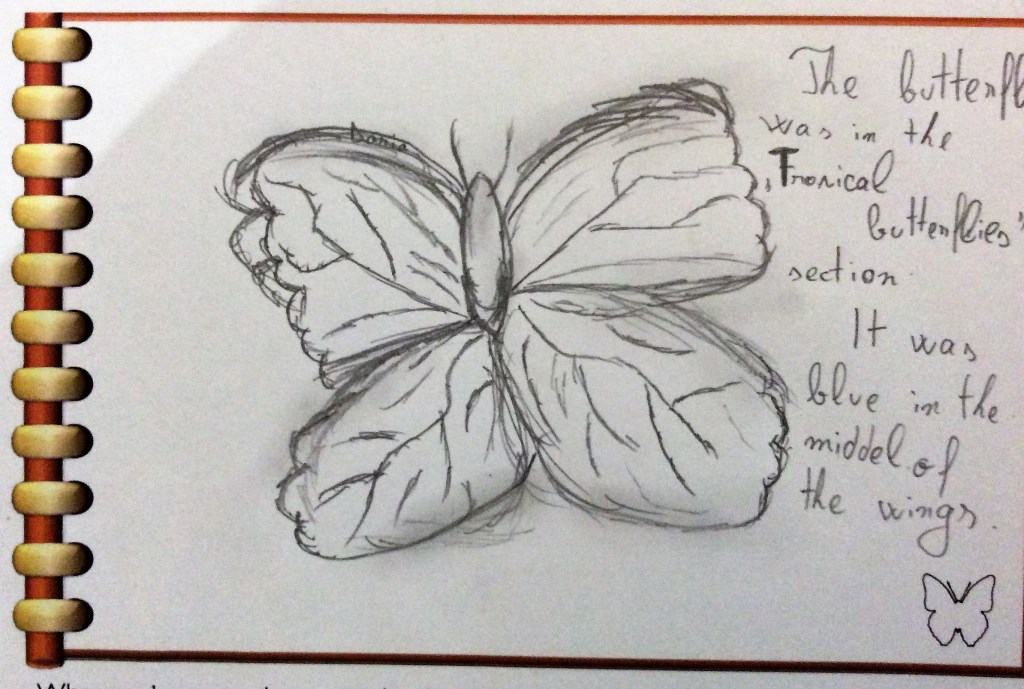 The butterfl
was in the
Tropical
butterflies'
section.
It was
blue in the
middel of
the wings.